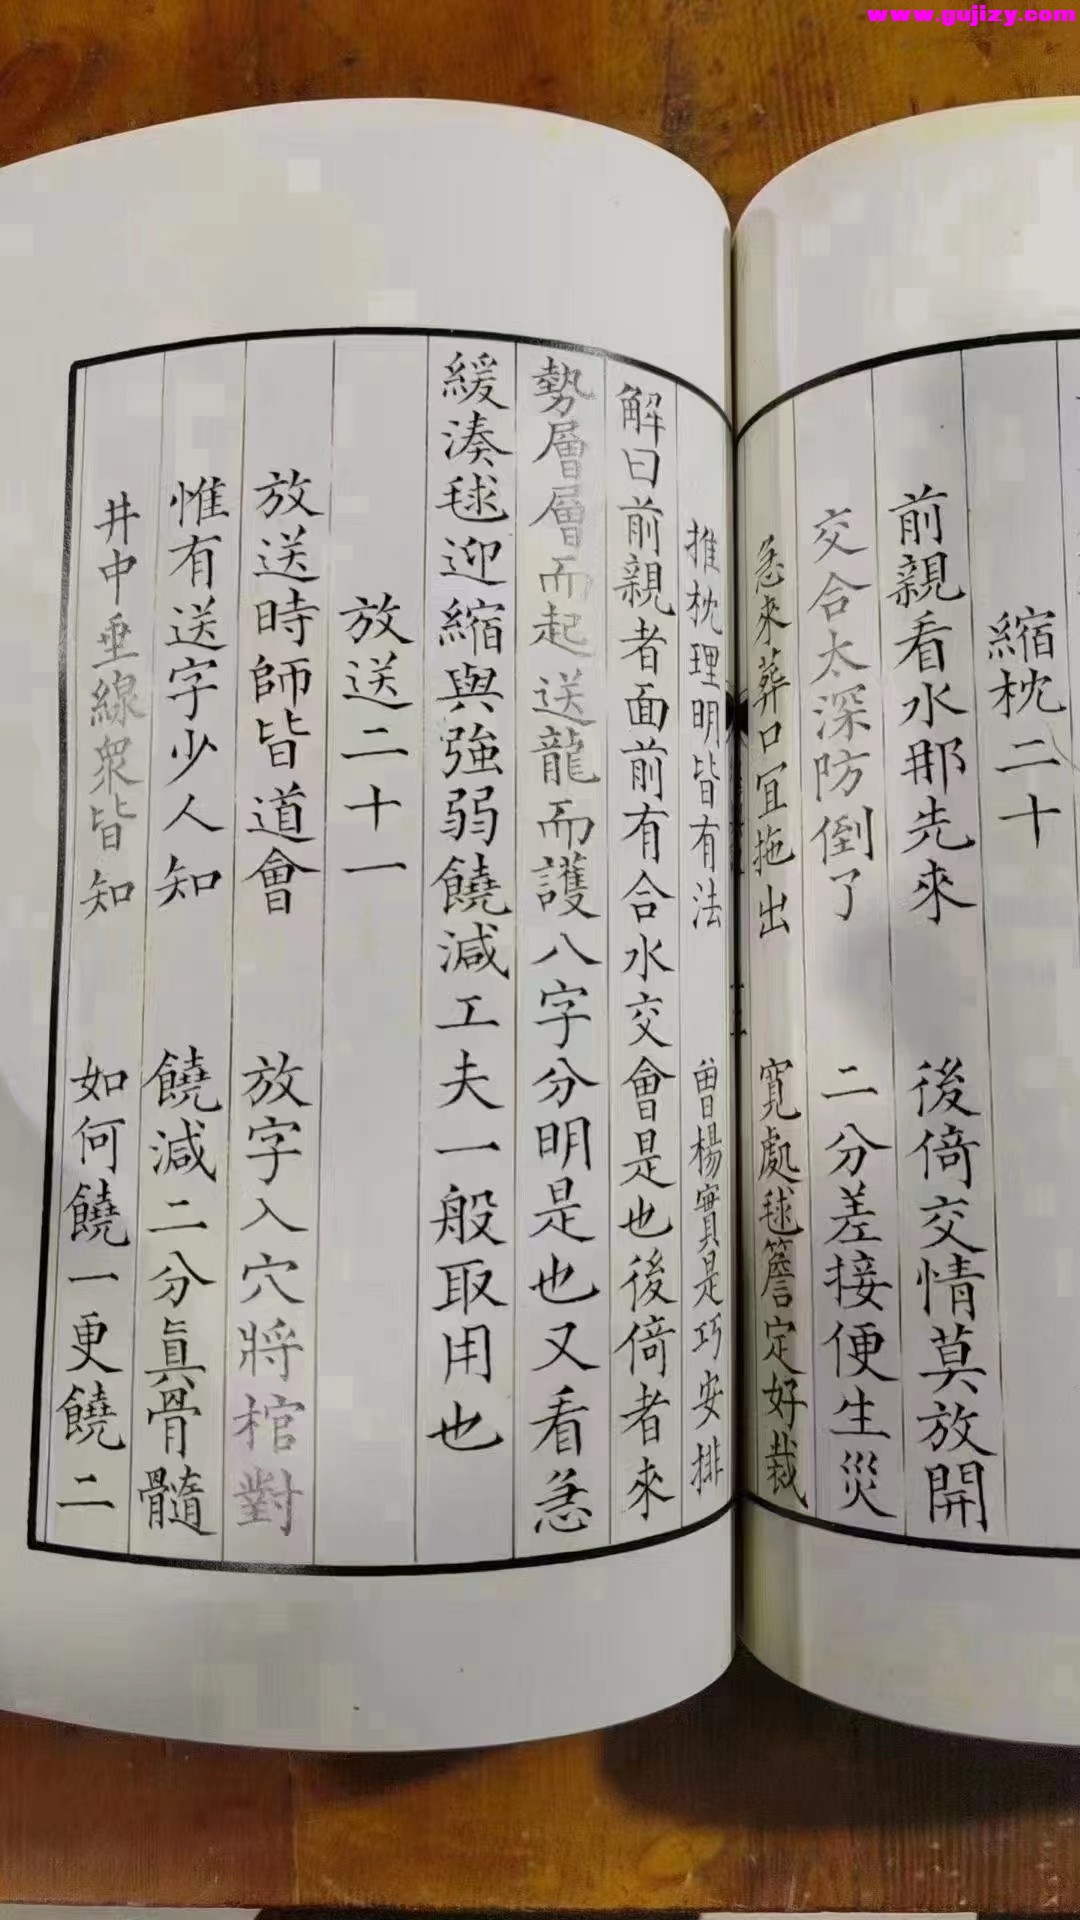 www.gujizy.com
縮枕二十
前親看水那先來 後倚交情莫放開
交合太深防倒了 二分差接便生災
急來葬口宜拖出 寬處毬簷定好裁
推枕理明皆有法 曾楊實是巧安排
解曰前親者面前有合水交會是也後倚者來
勢層層而起送龍而護八字分明是也又看急
緩湊毬迎縮與強弱饒減工夫一般取用也
放送二十一
放送時師皆道會 放字入穴將棺對
惟有送字少人知 饒減二分真骨髓
井中垂線眾皆知 如何饒一更饒二